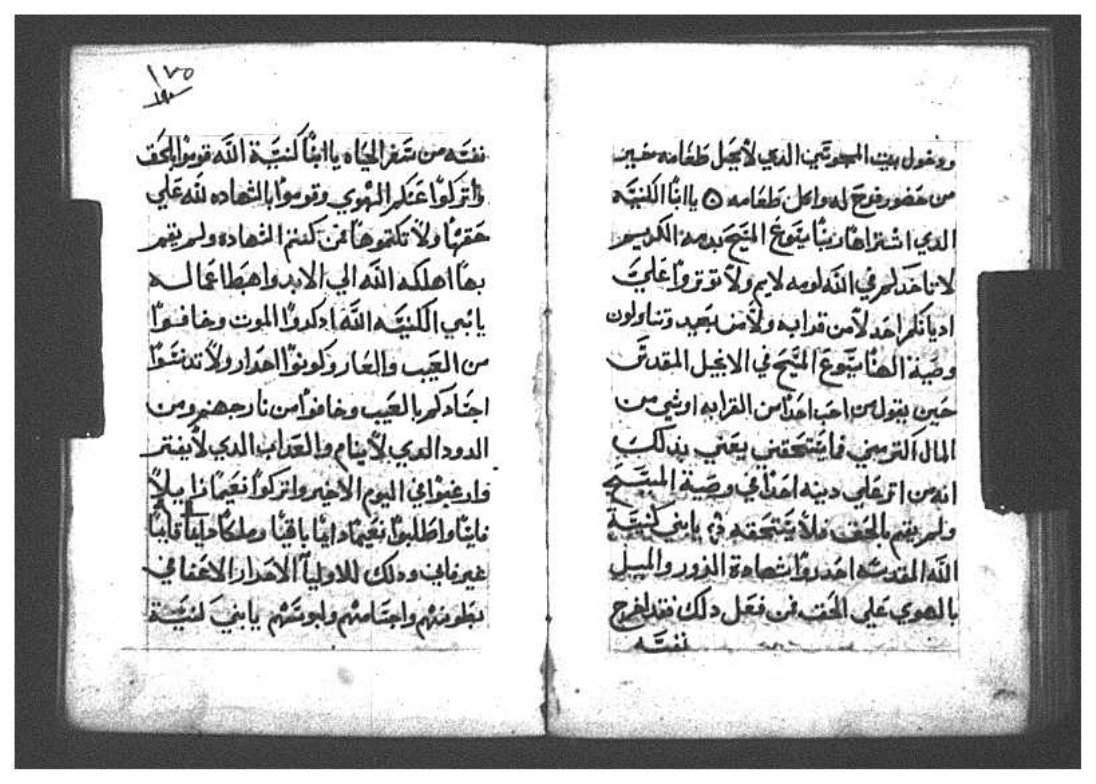 ودخول بيت المجوسي الذي لا يحل طعامه
من حضور فرح له واكل طعامه ۞ يا ابنا الكنيسه
الذي اشتراها ربنا يسوع المسيح بدمه الكريم
لا تاخدكم في الله لومه لايم ولا توتروا علي
اديانكم احد لا من قرابه ولا من بعيد وتناولون
وصية الهنا يسوع المسيح في الانجيل المقدس
حين يقول من احب احدا من القرابه او شي من
المال اكتر مني فما يستحقني يعني بدلك
انه من اتر علي دينه احدا في وصية المسيح
ولم يقم بالحق فلا يستحقه يا بني كنيسة
الله المقدسه احدروا شهادة الزور والميل
بالهوي علي الحق فمن فعل دلك فقد اخرج
نفسه
١٧٥
نفسه من سفر الحياه يا ابنا كنيسة الله قوموا بالحق
واتركوا عنكم الهوي وقوموا بالشهاده لله علي
حقها ولا تكتموها فمن كتم الشهاده ولم يقم
بها اهلكه الله الي الابد واهبط اعماله
يا بني الكنيسه الله ادكروا الموت وخافوا
من العيب والعار وكونوا احدار ولا تدنسوا
اجسادكم بالعيب وخافوا من نار جهنم ومن
الدود الدي لا ينام والعداب الدي لا يفتر
وارغبوا في اليوم الاخير واتركوا نعيما زايلا
فانيا واطلبوا نعيما دايما باقيا وملكا دايما قايما
غير فاني ودلك للاوليا الاحرار الاعفا في
بطونهم واجسامهم يا بني كنيسة